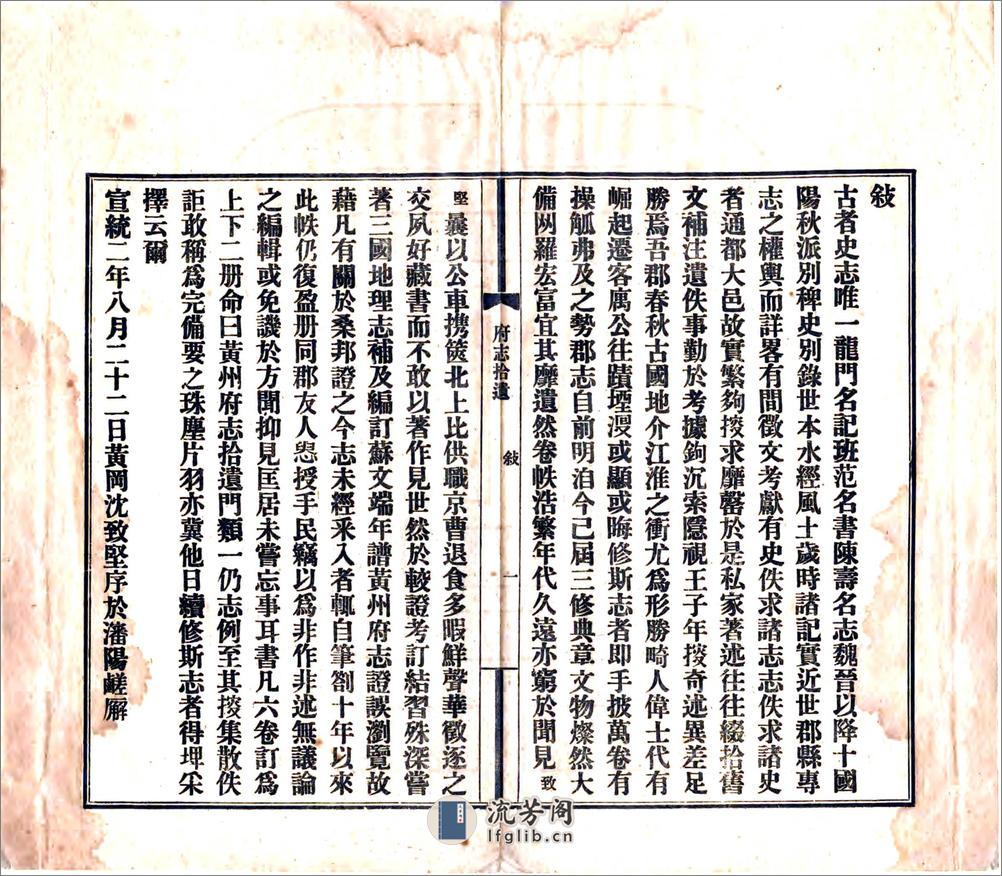 敍
古者史志唯一龍門名記班范名書陳壽名志魏晉以降十國
陽秋派別稗史別錄世本水經風土歲時諸記實近世郡縣專
志之權輿而詳畧有間徵文考獻有史佚求諸志志佚求諸史
者通都大邑故實繁夠搜求靡罄於是私家著述往往綴拾舊
文補注遺佚事勤於考據鉤沉索隱視王子年搜奇述異差足
勝焉吾郡春秋古國地介江淮之衝尤爲形勝畸人偉士代有
崛起遷客寓公往蹟堙漫或顯或晦修斯志者即手披萬卷有
操觚弗及之勢郡志自前明洎今已屆三修典章文物燦然大
備网羅宏富宜其靡遺然卷帙浩繁年代久遠亦窮於聞見致
府志拾遺
敍
一
堅曩以公車携篋北上比供職京曹退食多暇鮮聲華徵逐之
交夙好藏書而不敢以著作見世然於較證考訂結習殊深嘗
著三國地理志補及編訂蘇文端年譜黃州府志證誤瀏覽故
藉凡有關於桑邦證之今志未經釆入者輒自筆劄十年以來
此帙仍復盈册同郡友人慫授手民竊以爲非作非述無議論
之編輯或免譏於方聞抑見匡居未嘗忘事耳書凡六卷訂爲
上下二册命曰黃州府志拾遺門類一仍志例至其搜集散佚
詎敢稱爲完備要之珠塵片羽亦冀他日續修斯志者得埤釆
擇云爾
宣統二年八月二十二日黃岡沈致堅序於瀋陽鹺廨
流芳阁
lfglib.cn